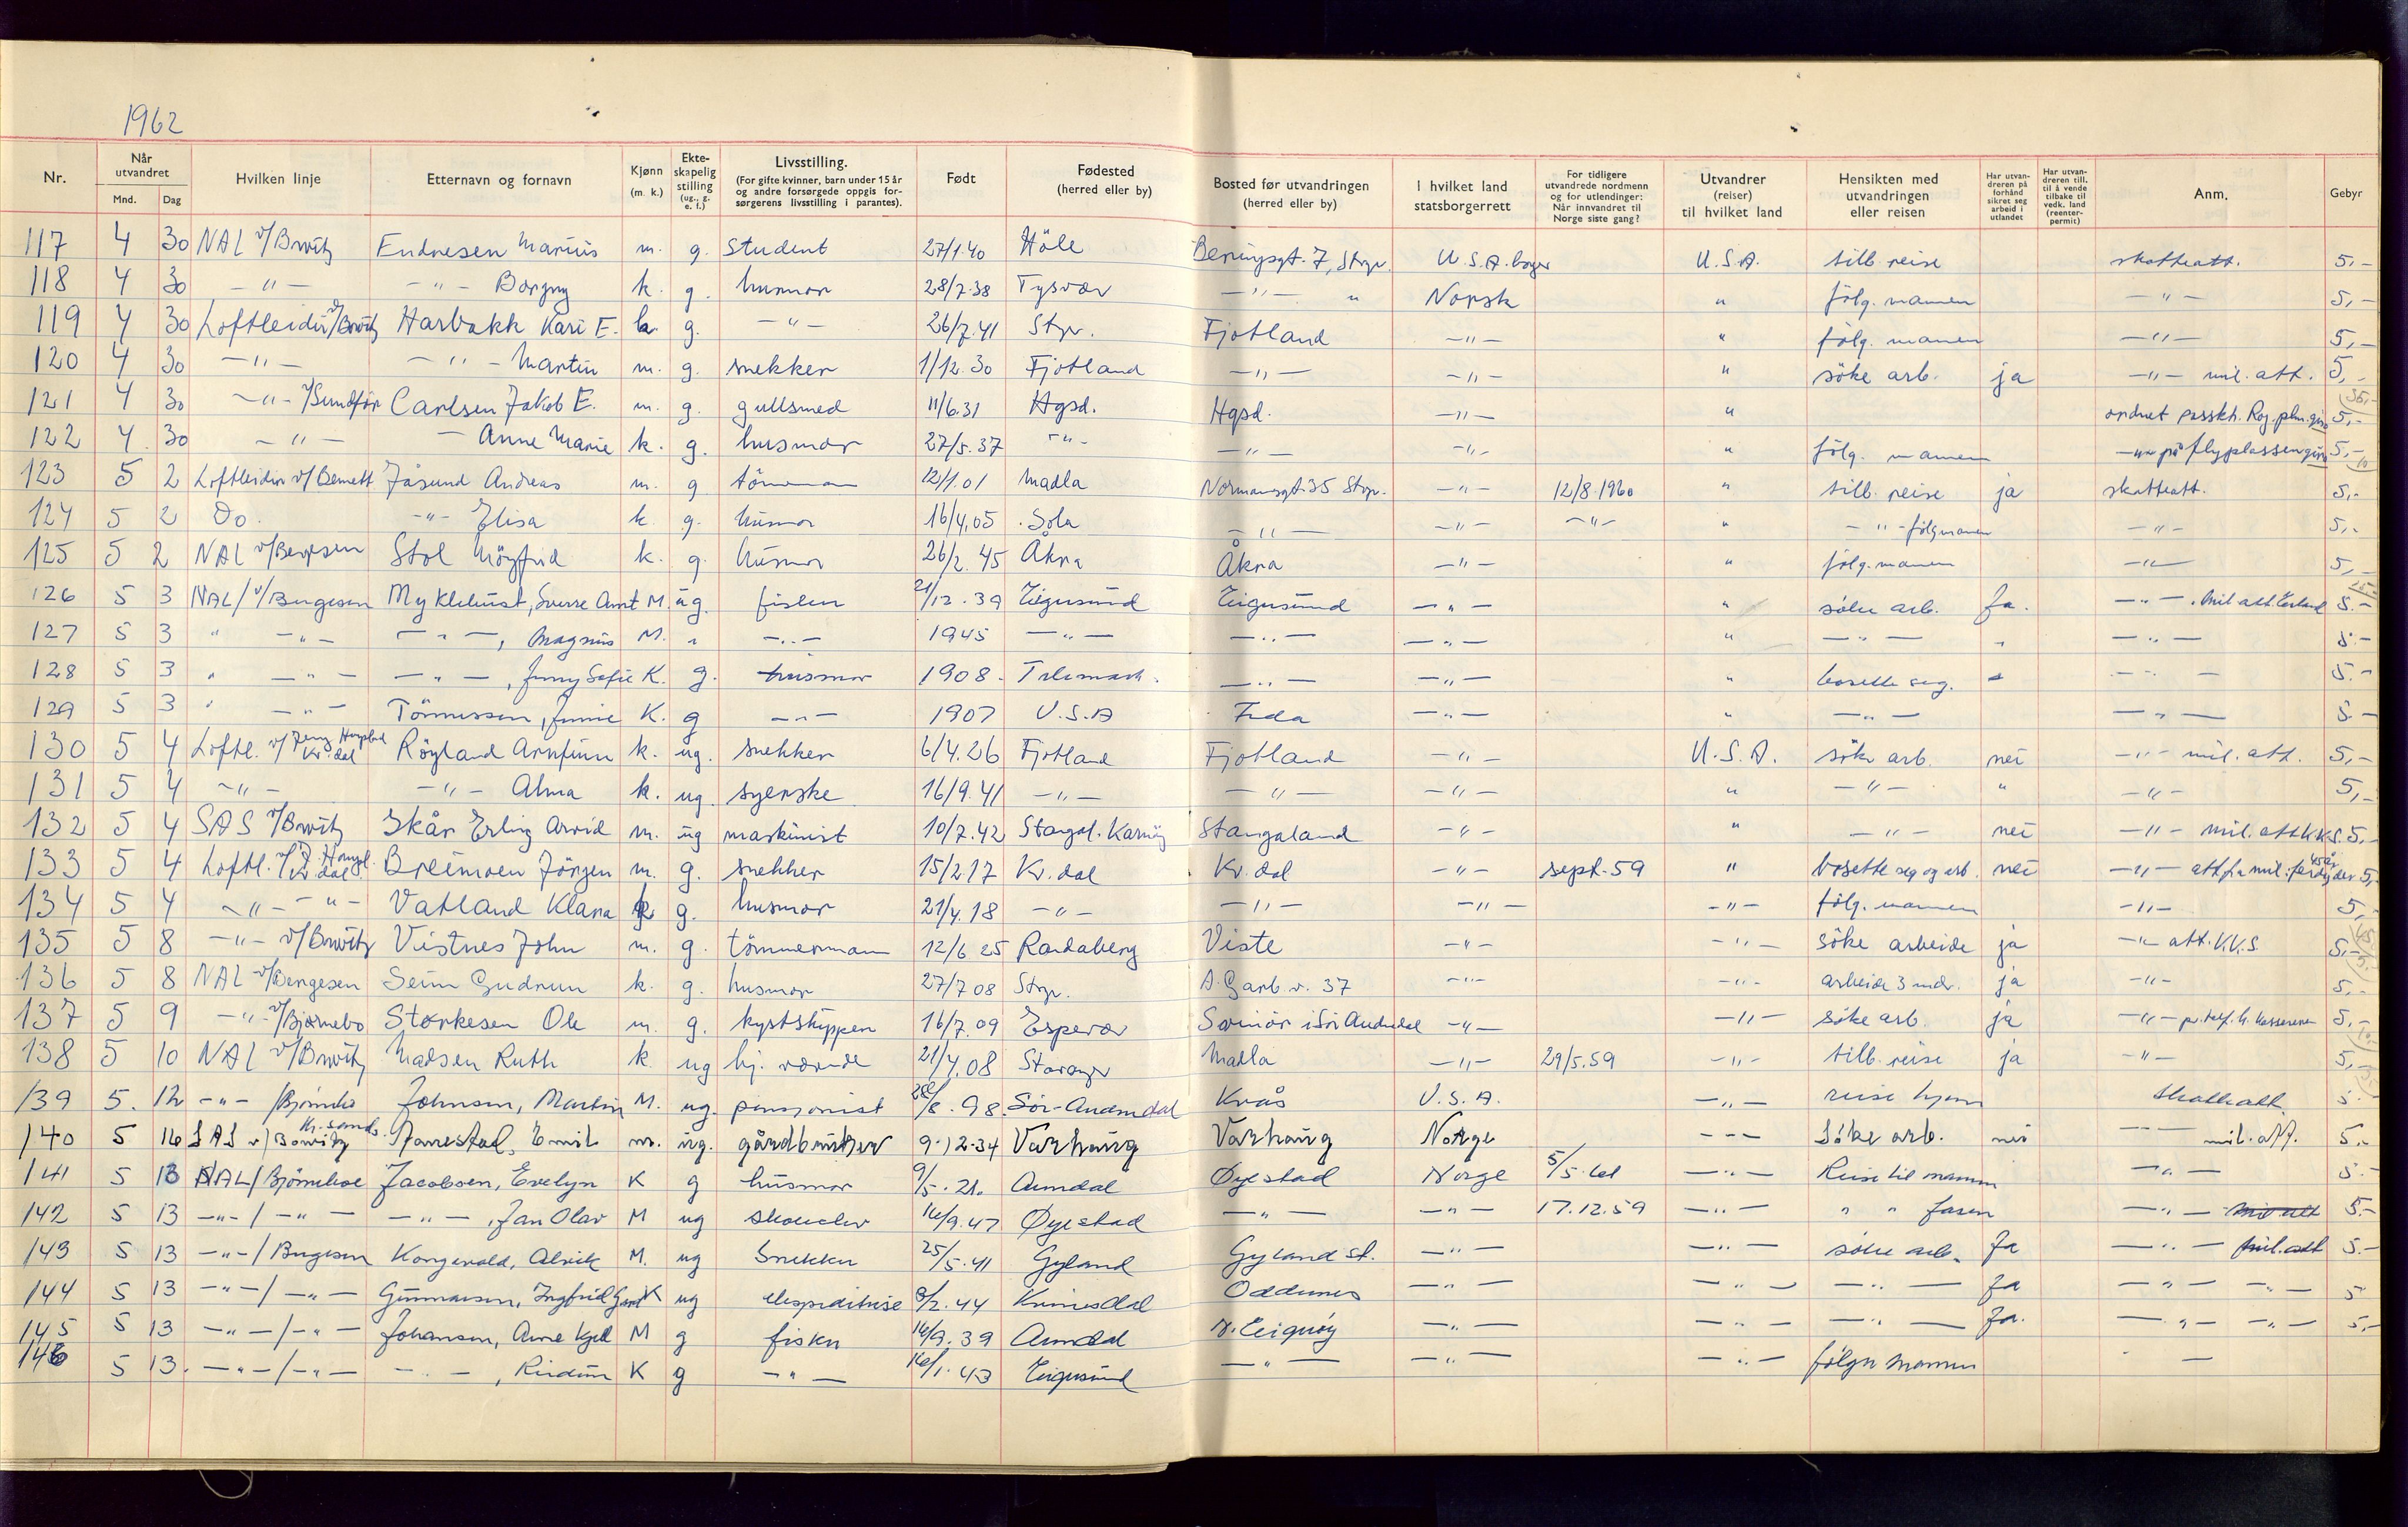 1962
Nr. Når utvandret Mnd. Dag Hvilken linje Etternavn og fornavn Kjønn (m. k.) Ekteskapelig stilling (ug., g. e. f.) Livsstilling. (For gifte kvinner, barn under 15 år og andre forsørgede oppgis forsørgerens livsstilling i parantes). Født Fødested (herred eller by) Bosted før utvandringen (herred eller by) I hvilket land statsborgerrett For tidligere utvandrede nordmenn og for utlendinger: Når innvandret til Norge siste gang? Utvandrer (reiser) til hvilket land Hensikten med utvandringen eller reisen Har utvandreren på forhånd sikret seg arbeid i utlandet Har utvandreren till. til å vende tilbake til vedk. land (reenterpermit) Anm. Gebyr
117 4 30 NAL v/Berwitz Endresen Marius m. g. student 27/1.40 Höle Beringsgt. 7, Stvgr. U.S.A. borger U.S.A. tilb. reise skatteatt. 5,-
118 4 30 -"- -"- Borgny k. g. husmor 28/7.38 Tysvær -"- " Norsk " följ. mannen -"- 5,-
119 4 30 Loftleidir v/Berwitz Harbakk Kari E. k. g. -"- 26/7.41 Stvgr. Fjotland -"- " följ. mannen -"- 5,-
120 4 30 -"- -"- Martin m. g. snekker 1/12.30 Fjotland -"- -"- " söke arb. ja -"- mil. att. 5,-
121 4 30 -"- v/Sundför Carlsen Jakob E. m. g. gullsmed 11/6.31 Hgsd. Hgsd. -"- " ordnet passkt. Rog. plm. giro 5,-
122 4. 30 -"- - Anne Marie k. g. husmor 27/5.37 -"- -"- -"- " följ. mannen -"- på flyplassen giro 5,-
123 5 2 Loftleidir v/Bennett Jåsund Andreas m. g. 12/1.01 Madla Normannsgt. 35 Stvgr. -"- 12/8.1960 " tilb. reise ja skatteatt. 5,-
124 5 2 Do. -"- Elisa k. g. husmor 16/4.05 Sola -"- -"- -"- " -"- följ mannen -"- 5,-
125 5 2 NAL v/Bergesen Stol Möyfrid k. g. husmor 26/2.45 Åkra Åkra -"- " följ. mannen -"- 5,-
126 5 3 NAL/ v/Bergesen Myklebust, Sverre Arnt M. ug. fisker 21/12.39 Eigersund Eigersund -"- " söke arb. Ja. -"- . Mil att. 5.-
127 5 3 " -"- -"-, Magnus M. " -"- 1945 -"- -"- -"- " -"- " -"- 5.-
128 5 3 " -"- -"-, Jenny Sofie K. g. husmor 1908. Telemark. -"- -"- " bosette seg. -"- 5.-
129 5 3 " -"- Tönnessen, K. g -"- 1907 U.S.A -"- " -"- -"- 5.-
130 5 4 Loftl. v/Jens Kv.dal Röyland Arnfinn k. ug. snekker 6/4.26 Fjotland Fjotland -"- U.S.A. söke arb. nei -"- mil. att. 5,-
131 5 4 -"- -"- Alma k. ug. syerske 16/9.41 -"- -"- -"- " -"- " -"- 5,-
132 5 4 SAS v/Berwitz Skår Erling Arvid m. ug maskinist 10/7.42 Stangal. Karmöy Stangaland -"- " -"- nei -"- mil. att K.K.S. 5,-
133 5 4 Loftl. v/J. Kv.dal Breimoen Jörgen m. g. snekker 15/2.17 Kv. dal Kv. dal -"- sept.59 " bosette seg og arb. nei -"- att fra mil. 45 år 5,-
134 5 4 -"- -"- Vatland Klara k. g. husmor 21/4.18 -"- -"- -"- -"- följ. mannen -"- 5,-
135 5 8 -"- v/Berwitz Vistnes John m. g. tömmermann 12/6 25 Randaberg Viste -"- -"- söke arbeide ja -"- att. K.K.S. 5,-
136 5 8 NAL v/Bergesen Seim Gudrun k. g. husmor 27/7 08 Stvgr. A. Garb. v. 37 -"- -"- arbeide 3 mdr. ja -"- 5,-
137 5 9 -"- v/Bjørnebo Størkesen Ole m. g. kystskipper 16/7.09 Espevær i Sör Audnedal -"- -"- söke arb. ja -"- pr. telf. h. kassereren 5,-
138 5 10 NAL v/Berwitz Madsen Ruth k. ug hj. værende 21/4.08 Stavanger Madla -"- 29/5.59 -"- tilb. reise ja -"- 5,-
139 5. 12 -"- /Bjørnebo Johnsen, Martin M. ug. pensjonist 28/8.98. Sör-Audnedal Kvås U.S.A. -"- reise hjem Skatteatt. 5.-
140 5 16 SAS v/Berwitz Kr.sands. Janestad, Emil m. ug. gårdbruker 9.12.34 Varhaug Varhaug Norge -"- Söke arb. nei -"- mil. att. 5.-
141 5 13 NAL/Bjørnebo Jacobsen, Evelyn K g husmor 9/5.21. Arendal Øyestad Norge 5/5.61 -"- Reise til mannen -"- 5.-
142 5 13 -"-/-"- -"-, Jan Olav M ug skoleelev 16/9.47 Øyestad -"- -"- 17.12.59 -"- " " faren -"- mil att 5.-
143 5 13 -"-/Bergesen Kongevold, Alrik M. ug Snekker 25/5.41 Gyland Gyland st. -"- -"- söke arb. Ja -"- mil. att 5.-
144 5 13 -"-/-"- Gunnarsen, Ingfrid K ug ekspeditrise 8/2.44 Kvinesdal Oddernes -"- -"- -"- Ja -"- -"- 5.-
145 5 13 -"-/-"- Johansen, Arne Kjell M g fisker 16/9.39 Arendal N. Eigeröy -"- -"- -"- Ja. -"- -"- 5,-
146 5 13. -"-/-"- -"-, Reidun K g -"- 16/1.43 Eigersund -"- -"- -"- följer mannen -